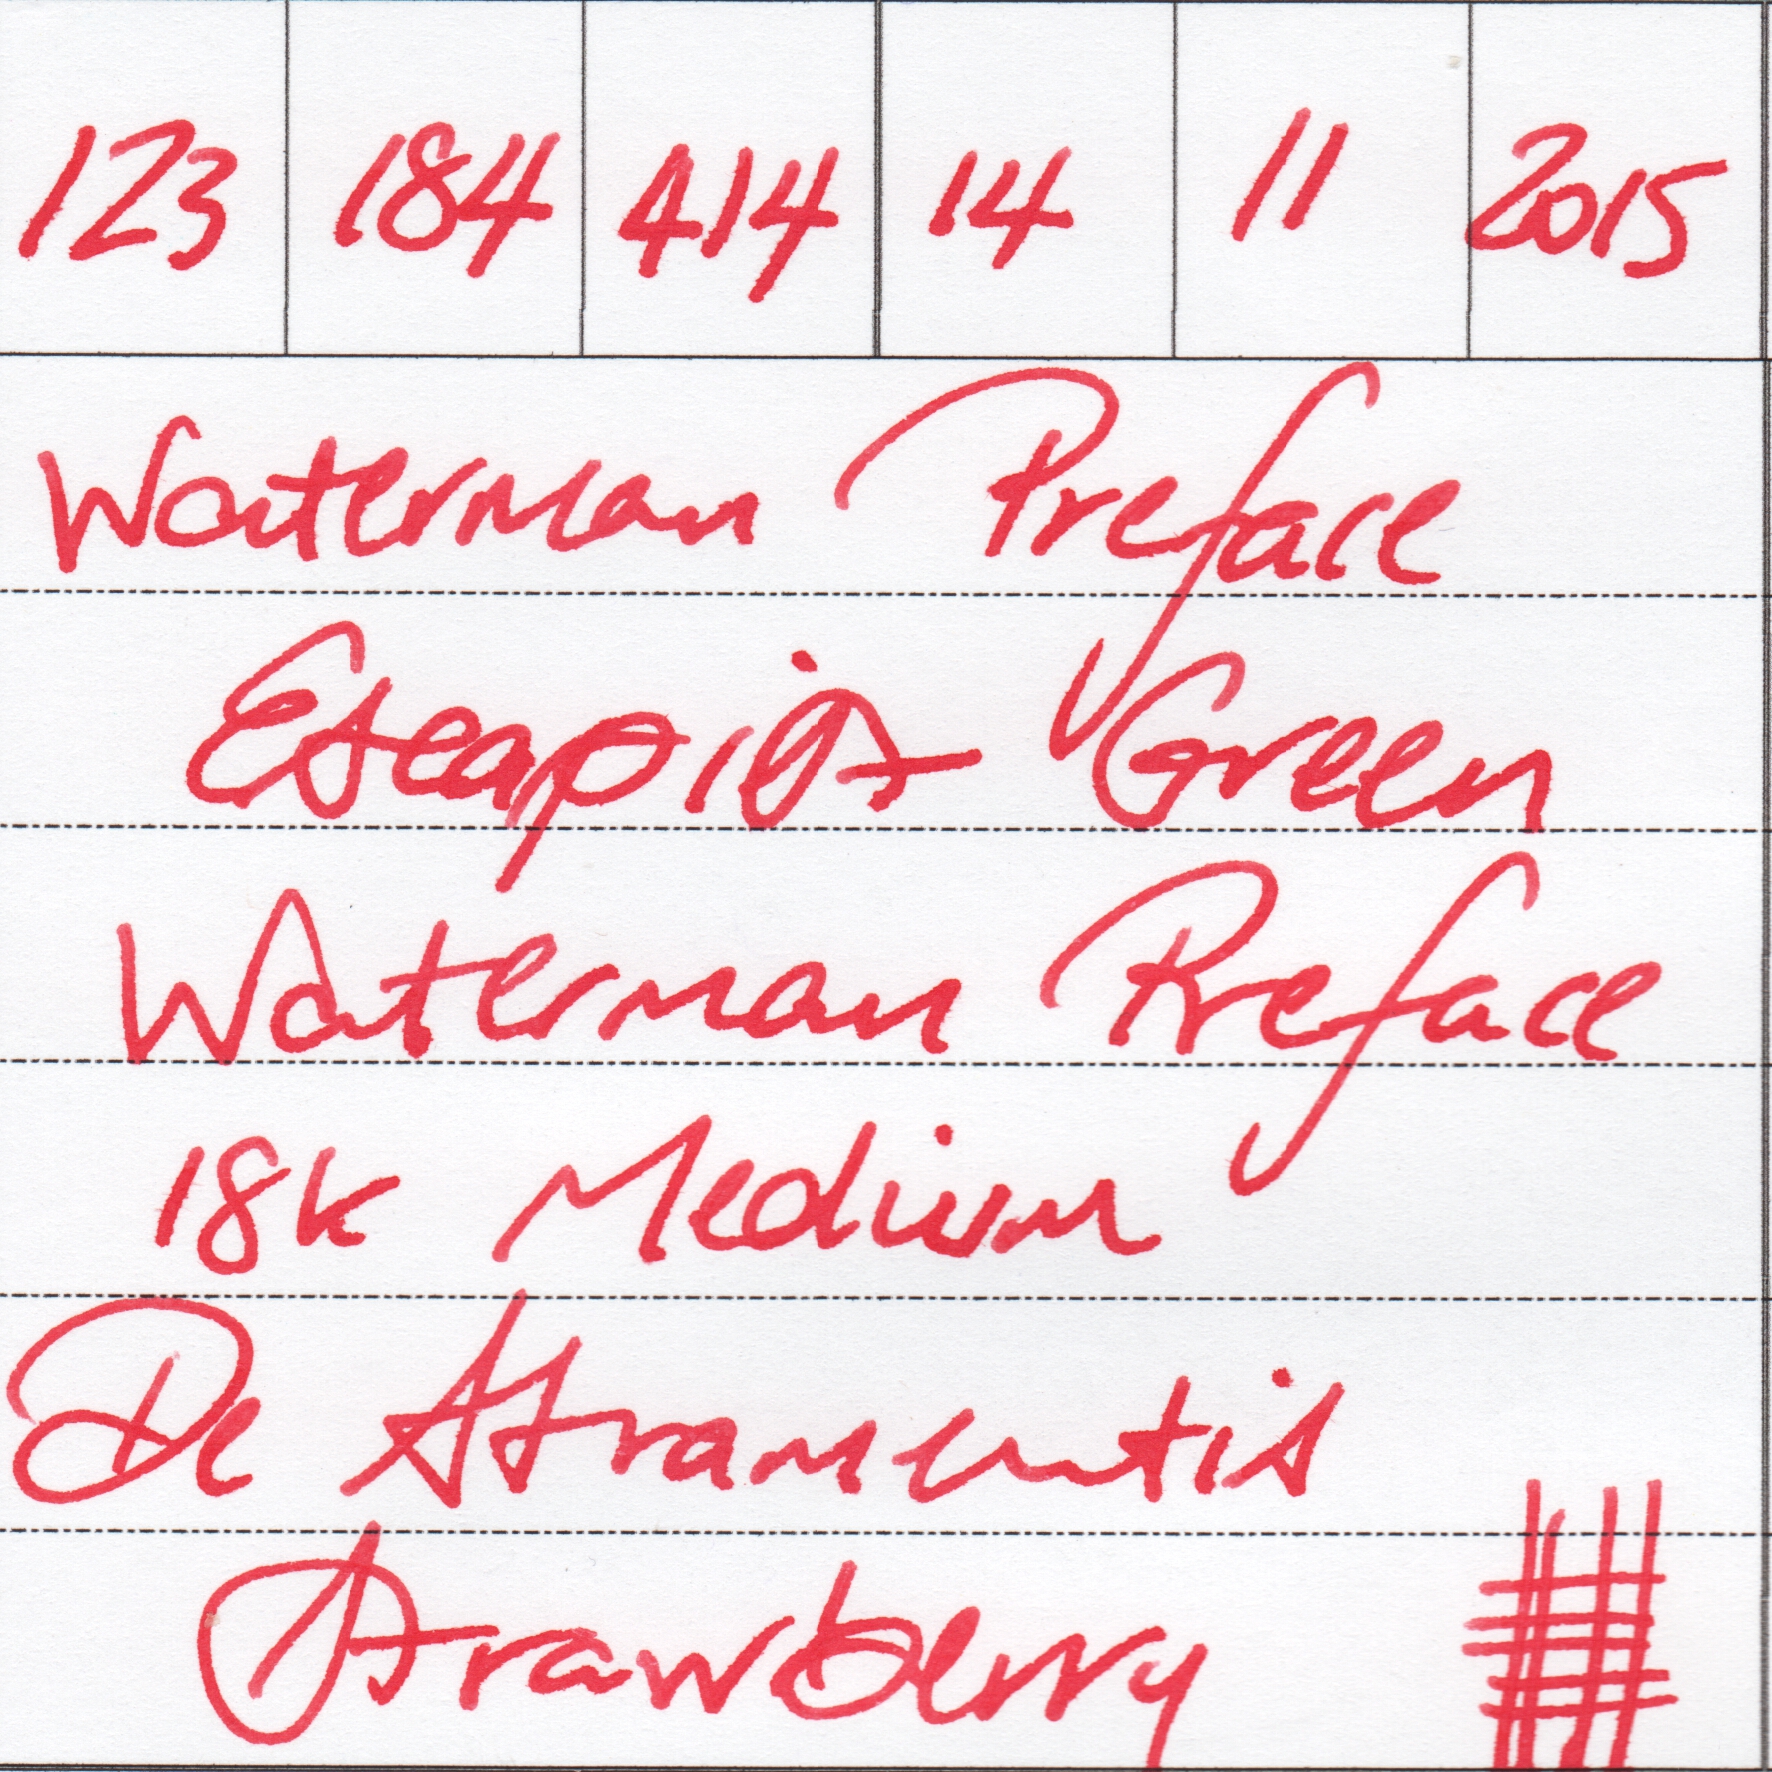 123 184 414 14 11 2015
Waterman Preface
Escapist Green
Waterman Preface
18k Medium
De Atramentis
Strawberry